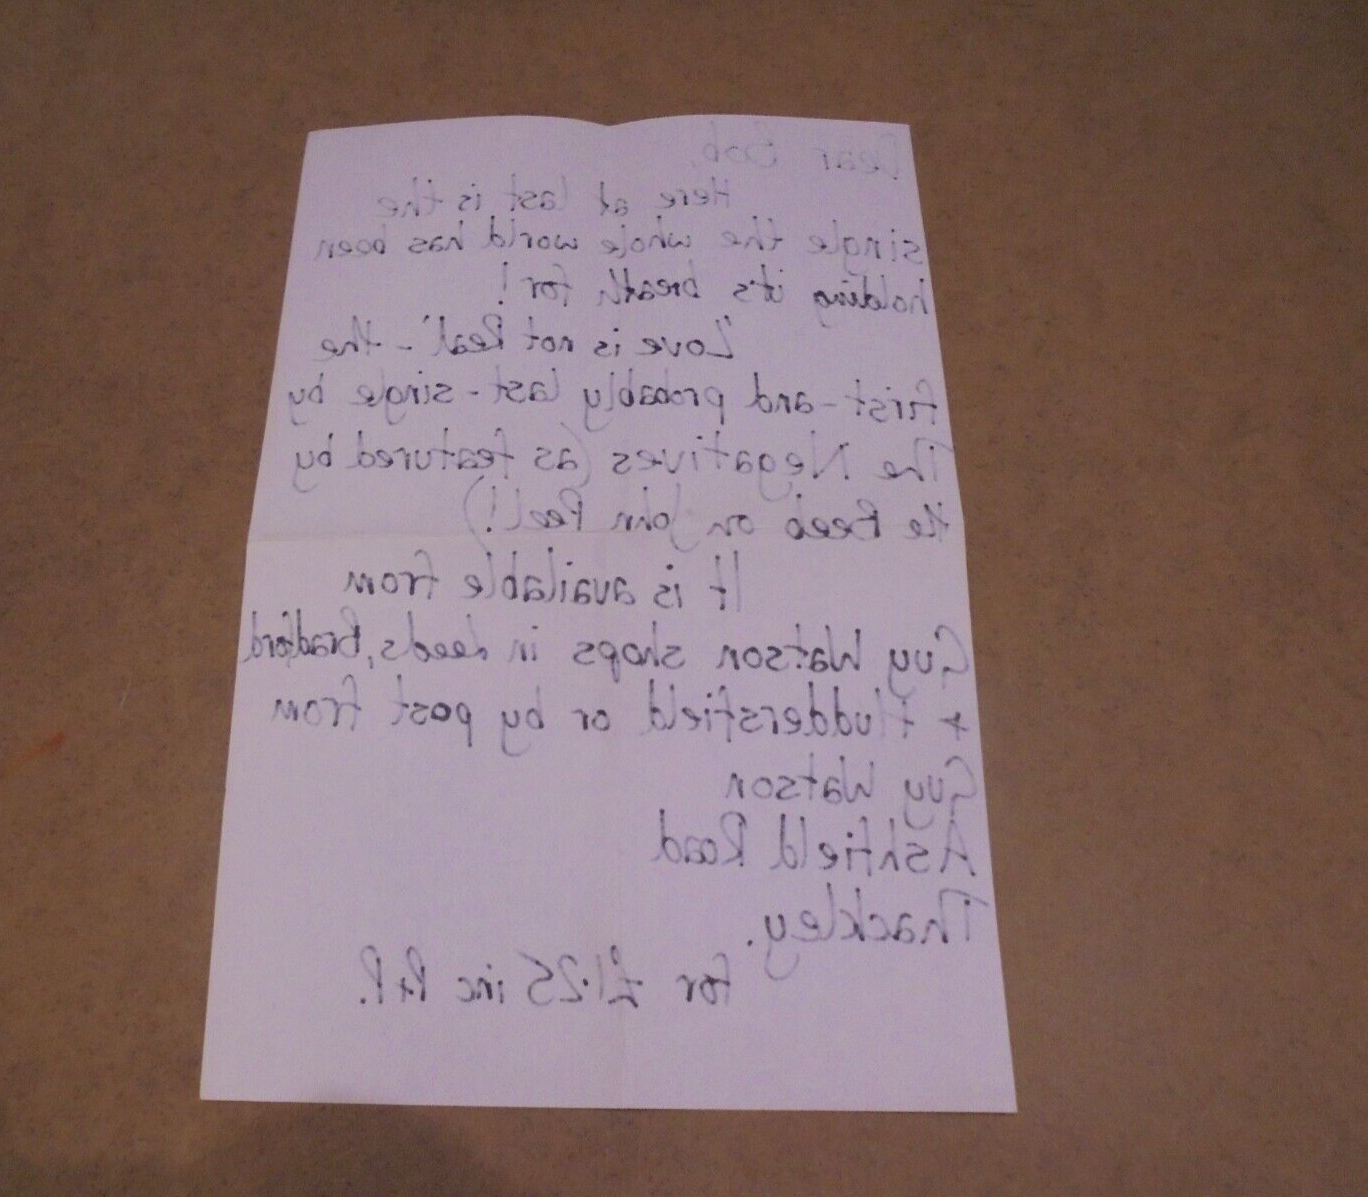 Dear Bob,
Here at last is the
single the whole world has been
holding it's breath for!
"Love is not Real" - the
first - and probably last - single by
The Negatives (as featured by
the Beeb on John Peel!)
It is available from
Guy Watson shops in Leeds, Bradford
+ Huddersfield or by post from
Guy Watson
Ashfield Road
Thackley.
for £1.25 inc P+P.